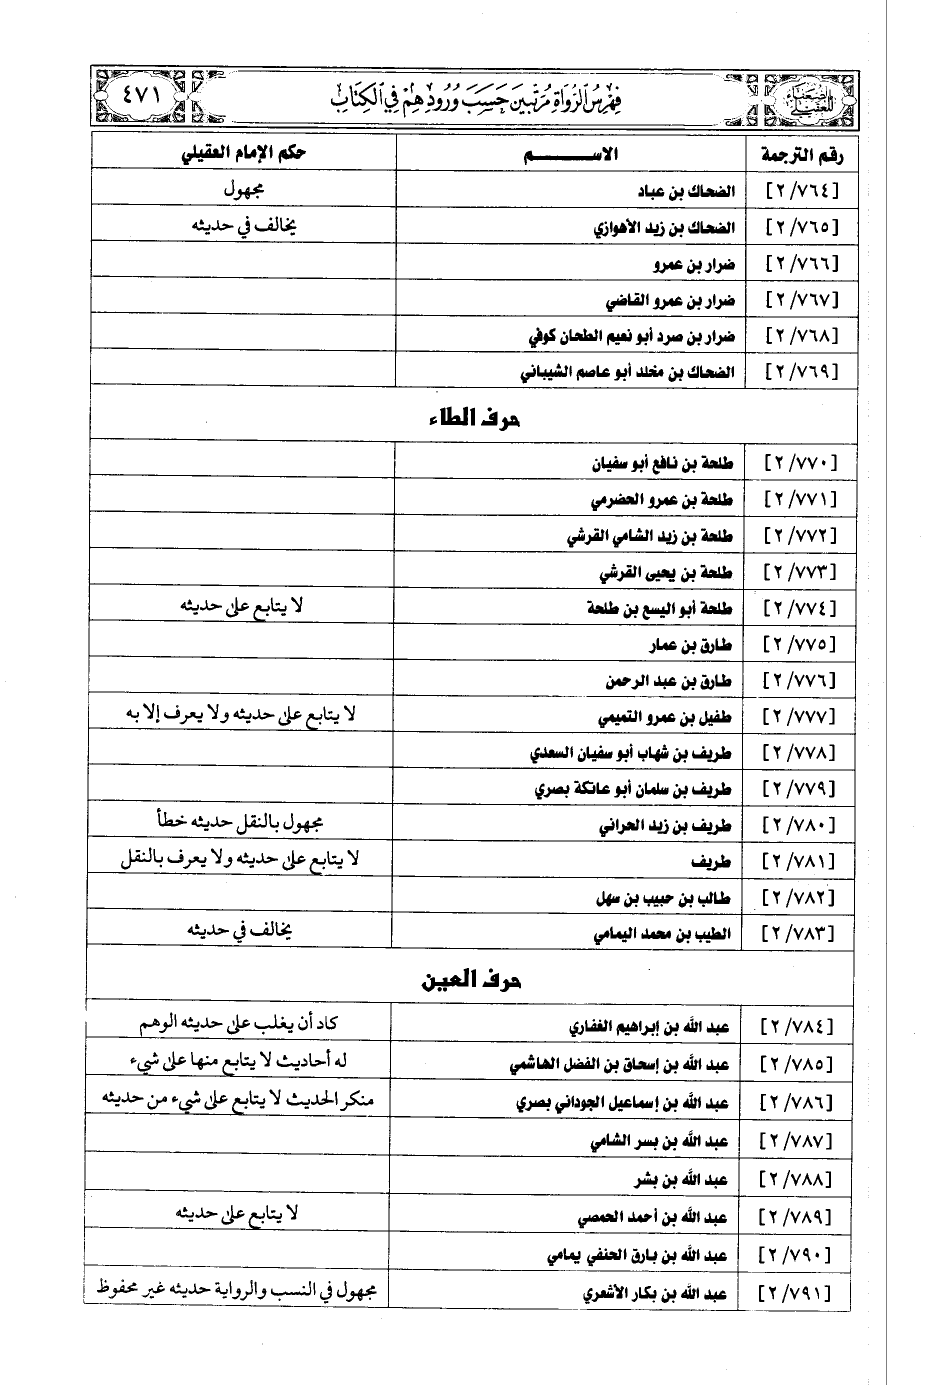 الضعفاء للعقيلي فهرس الرواة مرتبين حسب ورودهم في الكتاب ٤٧١
رقم الترجمة الاســـــم حكم الإمام العقيلي
[٢/٧٦٤] الضحاك بن عباد مجهول
[٢/٧٦٥] الضحاك بن زيد الأهوازي يخالف في حديثه
[٢/٧٦٦] ضرار بن عمرو
[٢/٧٦٧] ضرار بن عمرو القاضي
[٢/٧٦٨] ضرار بن صرد أبو نعيم الطحان كوفي
[٢/٧٦٩] الضحاك بن مخلد أبو عاصم الشيباني
حرف الطاء
[٢/٧٧٠] طلحة بن نافع أبو سفيان
[٢/٧٧١] طلحة بن عمرو الحضرمي
[٢/٧٧٢] طلحة بن زيد الشامي القرشي
[٢/٧٧٣] طلحة بن يحيى القرشي
[٢/٧٧٤] طلحة أبو اليسع بن طلحة لا يتابع على حديثه
[٢/٧٧٥] طارق بن عمار
[٢/٧٧٦] طارق بن عبد الرحمن
[٢/٧٧٧] طفيل بن عمرو التميمي لا يتابع على حديثه ولا يعرف إلا به
[٢/٧٧٨] طريف بن شهاب أبو سفيان السعدي
[٢/٧٧٩] طريف بن سلمان أبو عاتكة بصري
[٢/٧٨٠] طريف بن زيد الحراني مجهول بالنقل حديثه خطأ
[٢/٧٨١] طريف لا يتابع على حديثه ولا يعرف بالنقل
[٢/٧٨٢] طالب بن حبيب بن سهل
[٢/٧٨٣] الطيب بن محمد اليمامي يخالف في حديثه
حرف العين
[٢/٧٨٤] عبد الله بن إبراهيم الغفاري كاد أن يغلب على حديثه الوهم
[٢/٧٨٥] عبد الله بن إسحاق بن الفضل الهاشمي له أحاديث لا يتابع منها على شيء
[٢/٧٨٦] عبد الله بن إسماعيل الجوداني بصري منكر الحديث لا يتابع على شيء من حديثه
[٢/٧٨٧] عبد الله بن بسر الشامي
[٢/٧٨٨] عبد الله بن بشر
[٢/٧٨٩] عبد الله بن أحمد الحمصي لا يتابع على حديثه
[٢/٧٩٠] عبد الله بن بارق الحنفي يمامي
[٢/٧٩١] عبد الله بن بكار الأشعري مجهول في النسب والرواية حديثه غير محفوظ